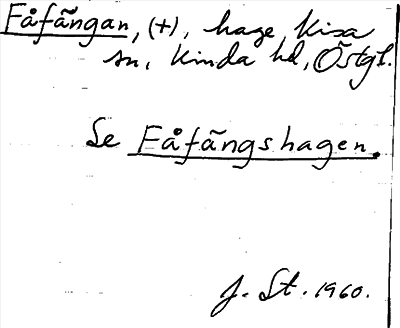 Fåfängan, (+), hage, Kisa
sn, Kinda hd, Östgl.
Se Fåfängshagen.
J. St. 1960.